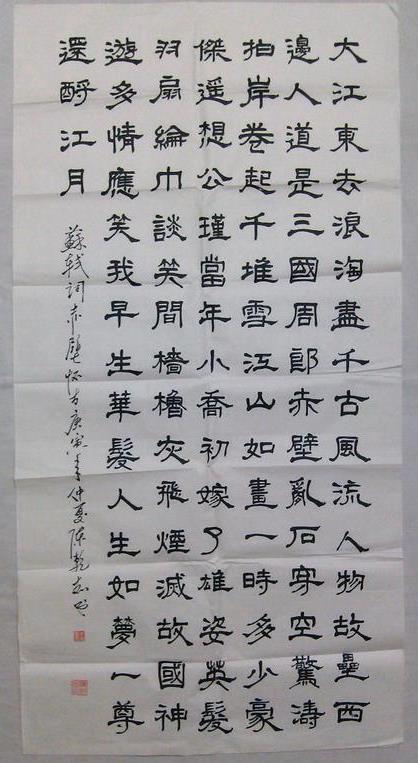 大江東去浪淘盡千古風流人物故壘西
邊人道是三國周郎赤壁亂石穿空驚濤
拍岸卷起千堆雪江山如畫一時多少豪
傑遥想公瑾當年小喬初嫁了雄姿英髮
羽扇綸巾談笑間檣櫓灰飛煙滅故國神
遊多情應笑我早生華髮人生如夢一尊
還酹江月
蘇軾詞赤壁怀古庚寅年仲夏陳乾志书